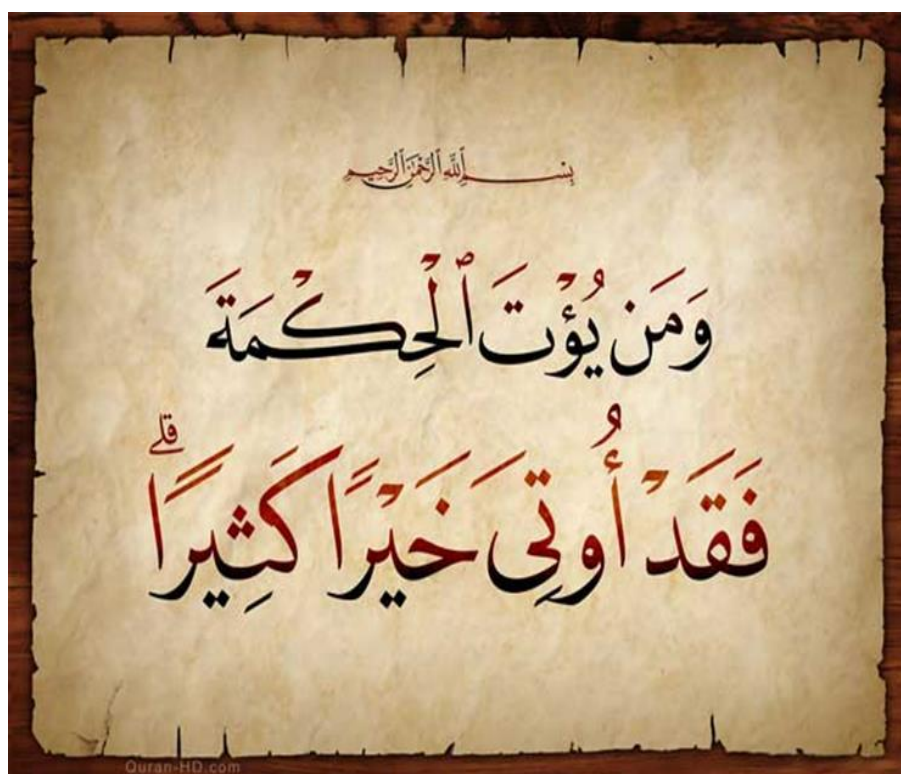 بِسْمِ ٱللَّهِ ٱلرَّحْمَٰنِ ٱلرَّحِيمِ
وَمَن يُؤْتَ ٱلْحِكْمَةَ
فَقَدْ أُوتِىَ خَيْرًا كَثِيرًا ۗ
Quran-HD.com